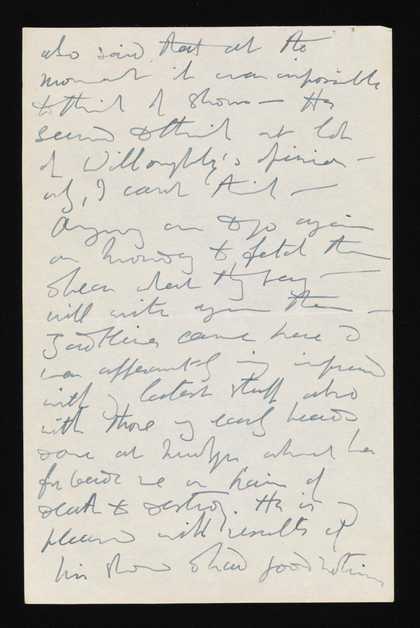 also said that at the
moment it was impossible
to think of shows — He
seems to think a lot
of Willoughby's opinion —
why, I can't think —
Anyway am to go again
on Monday to fetch them
& hear what they say —
will write again then —
came here &
was apparently impressed
with my latest stuff also
with those my early heads
done at which he
forbade me on pain of
death to destroy. He is
pleased with results of
his show & had good notices